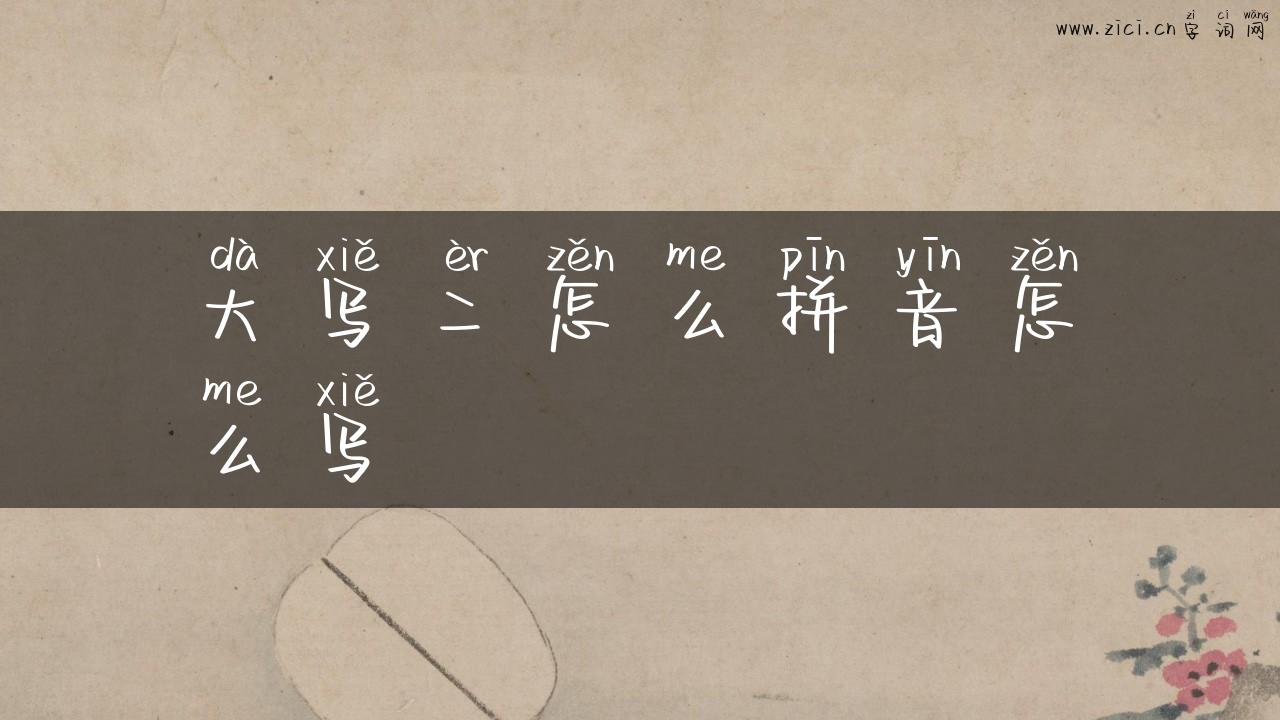 zì cí wǎng
www.zici.cn字词网
dà xiě èr zěn me pīn yīn zěn
大写二怎么拼音怎
me xiě
么写